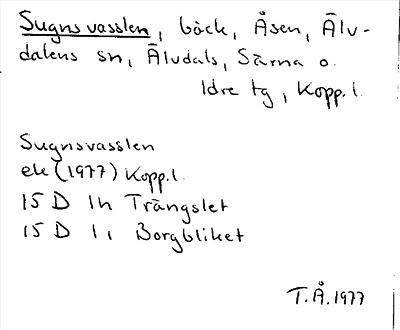 Sugnsvasslen, bäck, Åsen, Älv-
dalens sn, Älvdals, Särna o.
Idre tg, Kopp.l.
Sugnsvasslen
ek (1977) Kopp.l.
15 D 1h Trängslet
15 D 1i Borgbliket
T.Å. 1977